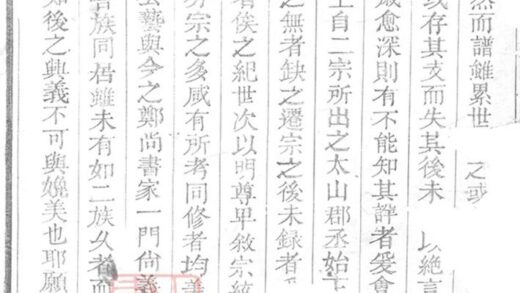 然而譜雖累世 之或
或存其支而失其後未 以絶言
歲愈深則有不能知其詳者爰會
上自二宗所出之太山郡丞始下
之無者缺之遷宗之後未録者
者俟之紀世次以明尊卑敘宗統
分宗之多咸有所考同修者均善
公藝與今之鄭尚書家一門尚義
合族同居雖未有如二族久者而
知後之興義不可與媲美也耶願